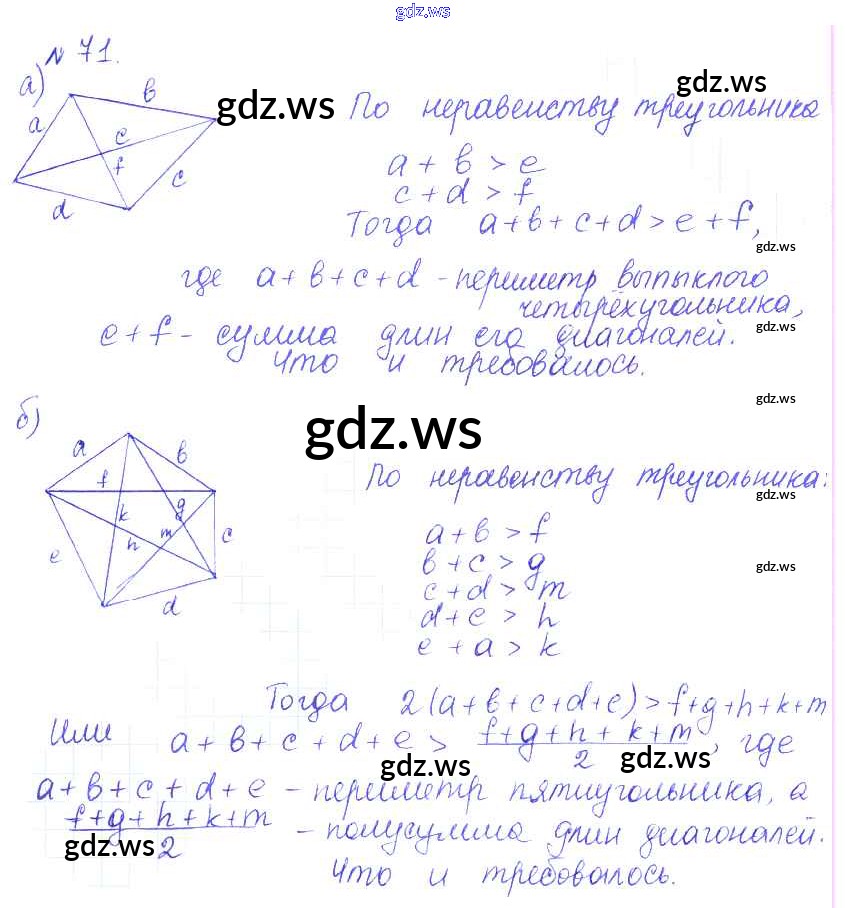 gdz.ws
№ 71.
а)
a
b
e
f
c
d
gdz.ws
gdz.ws
По неравенству треугольника
a + b > e
c + d > f
Тогда a + b + c + d > e + f,
gdz.ws
где a + b + c + d - периметр выпыклого
четырёхугольника,
e + f - сумма длин его диагоналей.
gdz.ws
Что и требовалось.
gdz.ws
б)
gdz.ws
a
b
f
g
k
h
m
c
e
d
По неравенству треугольника:
gdz.ws
a + b > f
b + c > g
c + d > m
gdz.ws
d + e > h
e + a > k
Тогда 2(a + b + c + d + e) > f + g + h + k + m
Или a + b + c + d + e > f + g + h + k + m / 2, где
gdz.ws
gdz.ws
a + b + c + d + e - периметр пятиугольника, а
f + g + h + k + m / 2 - полусумма длин диагоналей.
gdz.ws
Что и требовалось.